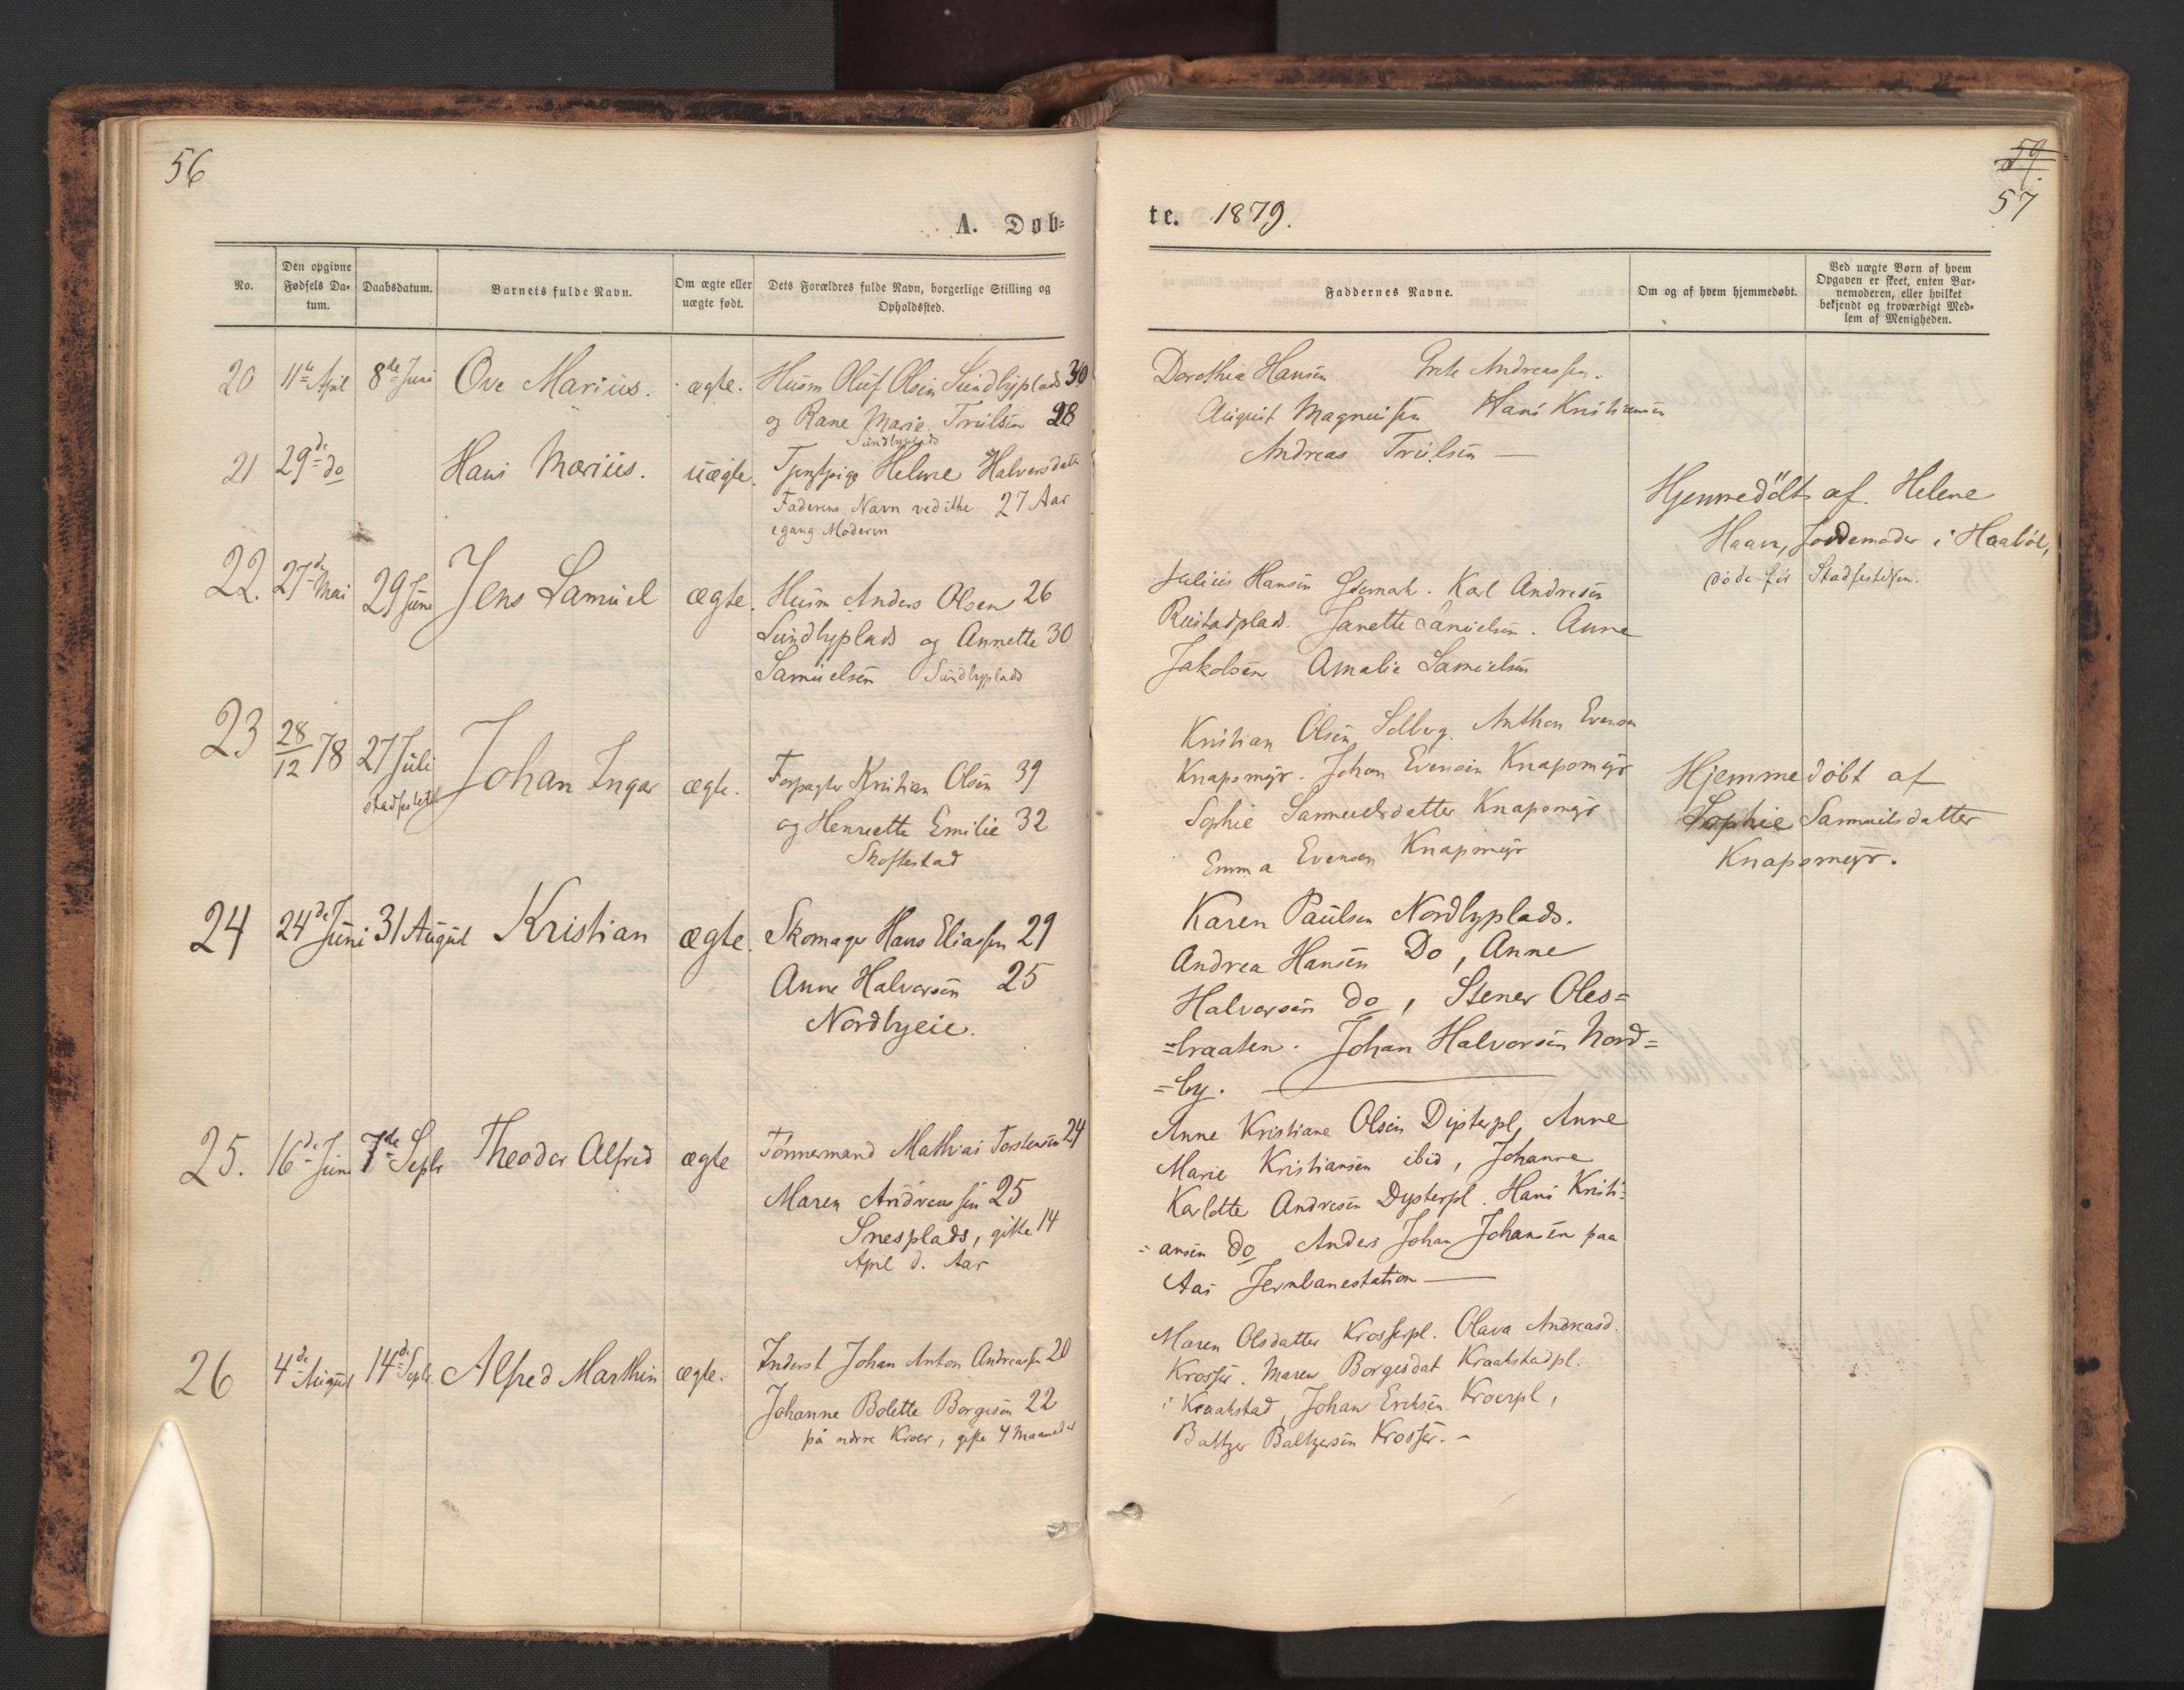 56
A. Døb=
No.
Den opgivne Fødsels Da=tum.
Daabsdatum.
Barnets fulde Navn.
Om ægte eller uægte født.
Dets Forældres fulde Navn, borgerlige Stilling og Opholdssted.
20 11te April 8de Juni Ove Marius. ægte. Husm Oluf Olsen Sundbyplads 30
og Rane Marie Trulsen 28
Sundbyplads
21 29de do Hans Marius. uægte. Tjenstpige Helene Halvorsdatt
Faderens Navn ved ikke 27 Aar
egang Moderen
22. 27de Mai 29 Juni Jens Samuel ægte. Husm Anders Olsen 26
Sundbyplads og Annette 30
Samuelsen Sundbyplads
23 28/12 78 27 Juli Johan Ingar ægte. Forpagter Kristian Olsen 39
stadfestet
og Henriette Emilie 32
Skoftestad
24 24de Juni 31 August Kristian ægte. Skomager Hans Eliassen 29
Anne Halvorsen 25
Nordbyeie.
25. 16de Juni 7de Septr Theodor Alfred ægte Tømmermand Mathias Torstensen 24
Maren Andreassen 25
Snesplads, gifte 14
April d. Aar
26 4de August 14de Septr. Alfred Marthin ægte. Inderst Johan Anton Andreassen 20
Johanne Bolette Borgesen 22
på nordre Kroer, gifte 4 Maaneder
59.
57
te. 1879.
Faddernes Navne.
Om og af hvem hjemmedøbt.
Ved uægte Børn af hvem
Opgaven er skeet, enten Bar=
nemoderen, eller hvilket
bekjendt og troværdigt Med=
lem af Menigheden.
Dorothea Hansen Grete Andreassen.
August Magnussen Hans Kristiansen
Andreas Trulsen —
Hjemmedöbt af Helene
Haan, Jordemoder i Haaböl,
döde för Stadfestelsen.
Julius Hansen Karl Andresen
Rustadplads. Janette Samuelsen. Anne
Jakobsen Amalie Samuelsen
Kristian Olsen Solberg. Anthon Evensen
Knapsmyr. Johan Evensen Knapsmyr
Sophie Samuelsdatter Knapsmyr
Emma Evensen Knapsmyr
Hjemmedöbt af
Sophie Samuelsdatter
Knapsmyr.
Karen Paulsen Nordbyplads.
Andrea Hansen Do, Anne
Halvorsen do, Stener Oles=
=braaten. Johan Halvorsen Nord=
=by.
Anne Kristiane Olsen Dysterpl, Anne
Marie Kristiansen ibid, Johanne
Karlotte Andresen Dysterpl. Hans Kristi=
=ansen do Anders Johan Johansen paa
Aas Jernbanestation —
Maren Olsdatter Krosserpl. Olava Andreasd.
Krosser. Maren Borgesdat Kraakstadpl.
i Kraakstad, Johan Eriksen Kroerpl,
Baltzer Baltzersen Krosser. -